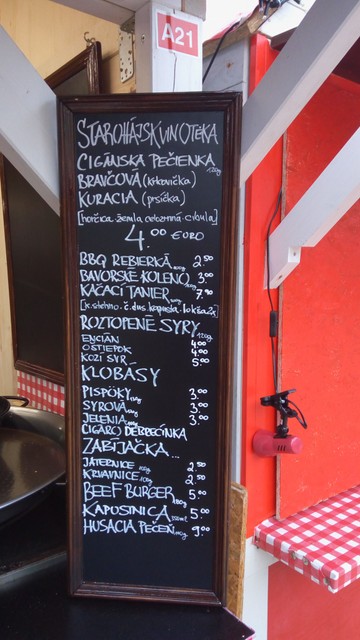 A21
STAROHÁJSK VINOTÉKA
CIGÁNSKA PEČIENKA 120g
BRAVČOVÁ (krkovička)
KURACIA (prsíčka)
[horčica žemľa celozrnná cibuľa]
4.00 EURO
BBQ REBIERKÁ 2.50
BAVORSKÉ KOLENO 3.00
KAČACÍ TANIER 7.90
[k.stehno.č.dus.kapusta.lokša2x]
ROZTOPENÉ SYRY 120g
ENCIÁN 4.00
OŠTIEPOK 4.00
KOZÍ SYR 5.00
KLOBÁSY
PISPÖKY 3.00
SYROVÁ 3.00
JELENIA 3.00
ČIGARO DEBRECÍNKA
ZABÍJAČKA...
JATERNICE 2.50
KRVAVNICE 2.50
BEEF BURGER 5.00
KAPUSTNICA 5.00
HUSACIA PEČEŇ 9.00